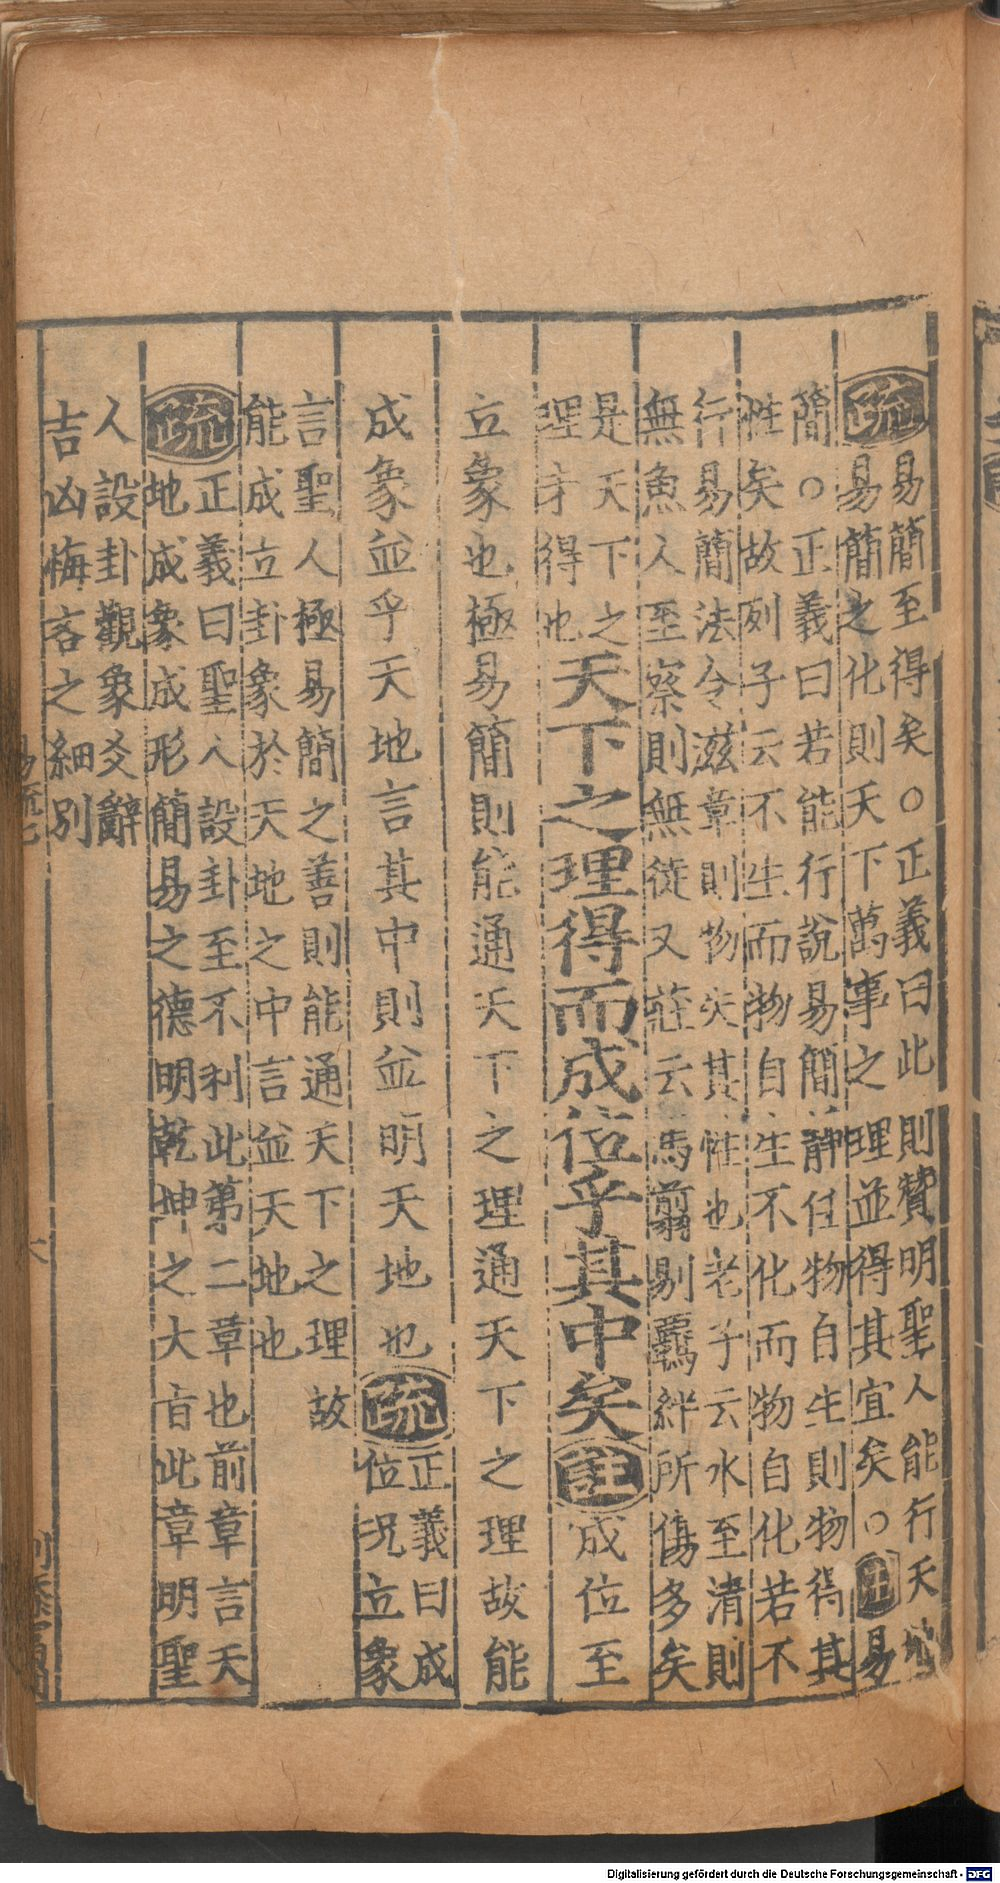 疏易簡至得矣○正義曰此則贊明聖人能行天地
易簡之化則天下萬事之理並得其宜矣○註易
簡○正義曰若能行說易簡靜任物自生則物得其
性矣故列子云不生而物自生不化而物自化若不
行易簡法令滋章則物失其性也老子云水至清則
無魚人至察則無徒又莊云馬翦剔羈絆所傷多矣
是天下之
理才得也天下之理得而成位乎其中矣註成位至
立象也極易簡則能通天下之理通天下之理故能
成象並乎天地言其中則並明天地也疏正義曰成
位況立象
言聖人極易簡之善則能通天下之理故
能成立卦象於天地之中言並天地也
疏正義曰聖人設卦至不利此第二章也前章言天
地成象成形簡易之德明乾坤之大旨此章明聖
人設卦觀象爻辭
吉凶悔吝之細別
易疏七
六
Digitalisierung gefördert durch die Deutsche Forschungsgemeinschaft - DFG